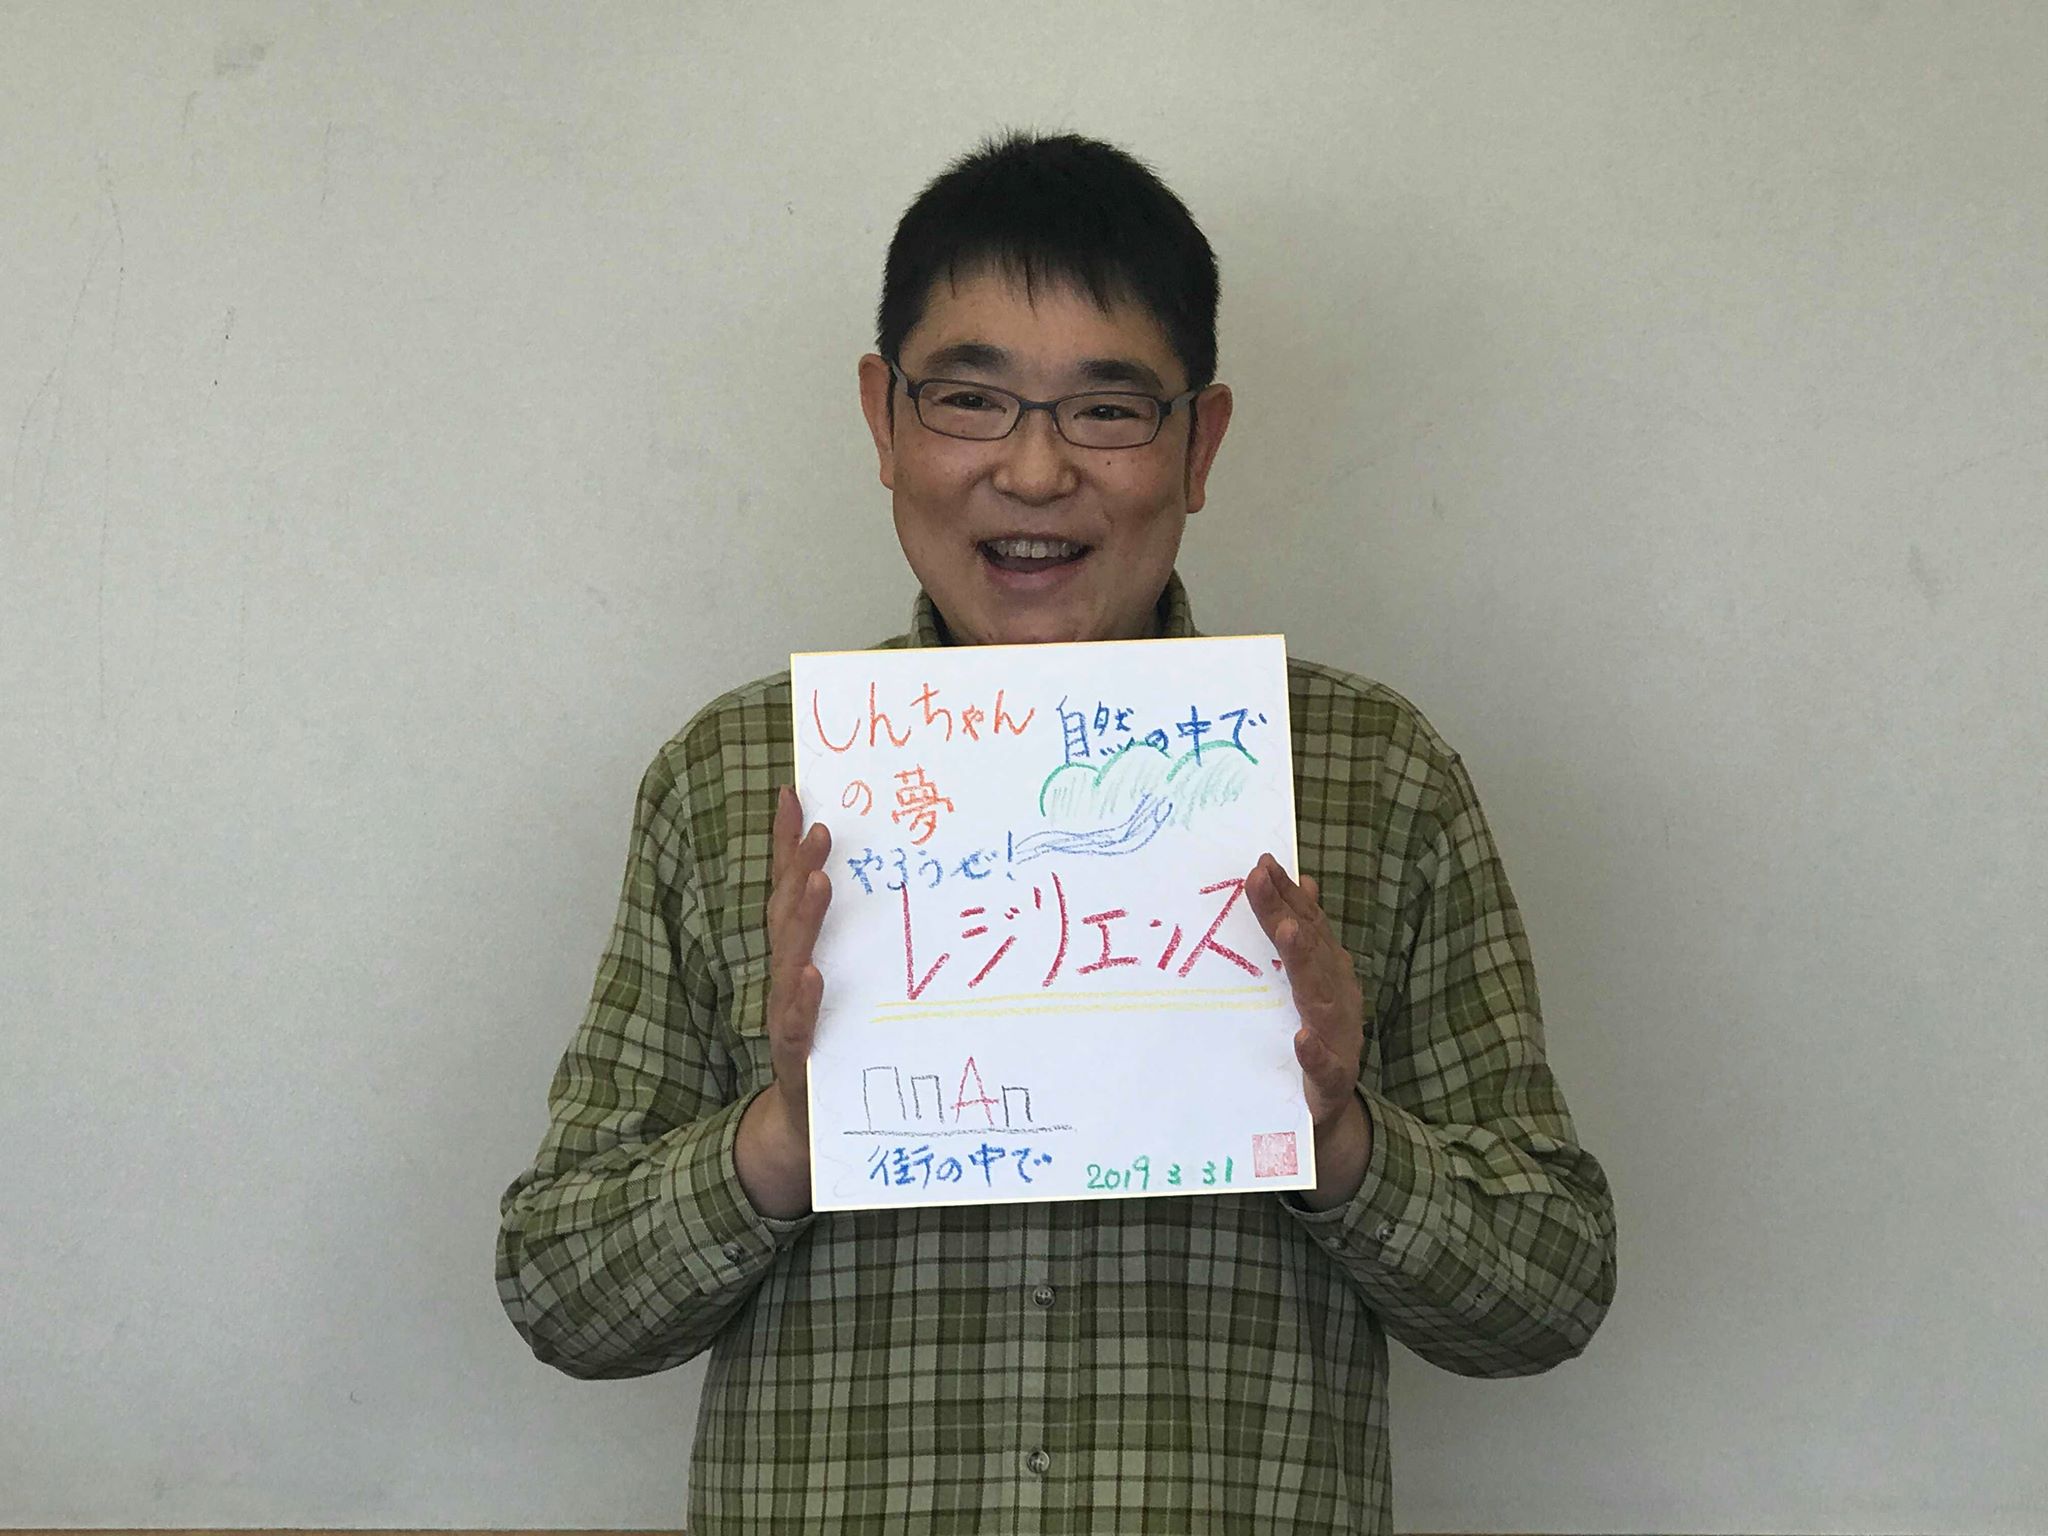 しんちゃん
の夢
自然の中で
やろうぜ!
レジリエンス.
街の中で
2019 3 31